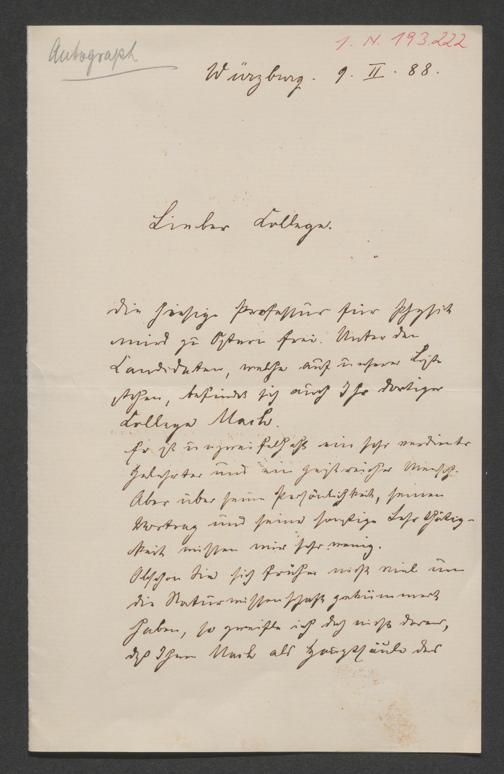 Autograph
I. N. 193.222
Würzburg. 9. II. 88.
Lieber College.
Die hiesige Professur für Physik
wird zu Ostern frei. Unter den
Candidaten, welche auf unserer Liste
stehen, befindet sich auch Ihr dortiger
College Mach.
Er ist unzweifelhaft ein sehr verdienter
Gelehrter und ein geistreicher Mensch.
Aber über seine Persönlichkeit, seinen
Vortrag und seine sonstige Lehrthätig-
keit wissen wir sehr wenig.
Obschon Sie sich früher nicht viel um
die Naturwissenschaft gekümmert
haben, so zweifle ich doch nicht daran,
daß Ihnen Mach als Hauptsäule des